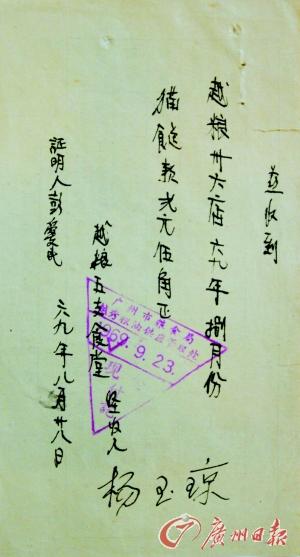 兹收到
越粮卅六店六九年捌月份
猫饭款弍元伍角正
越粮五支食堂
经收人
杨玉琼
証明人彭爱民
六九年八月廿八日
广州市粮食局
1969.9.23
现金付訖
廣州日报